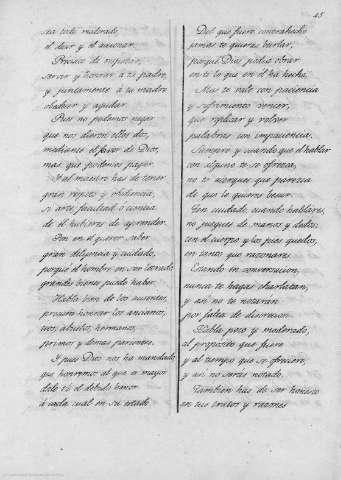 45
sea todo moderado,
el dar y el razonar.
Precias de respetar,
servir y honrar á tu padre,
y juntamente á tu madre
obedecer y ayudar.
Pues no podemos negar
que nos dieron ellos dos,
mediante el favor de Dios,
mas que podemos pagar.
Y al maestro has de tener
gran respeto y obediencia,
si arte facultad ó ciencia
de el hubieres de aprender.
Pon en el querer saber
gran diligencia y cuidado,
porque el hombre en ser honrado
grandes bienes puede haber.
Habla bien de los ausentes,
procura honrar los ancianos,
tios, abuelos, hermanos,
primos y demas parientes.
Y pues Dios nos ha mandado
que honremos al que es mayor
dale tú el debido honor
á cada cual en su estado.
Del que fuere contrahecho
jamas te quieras burlar,
porque Dios podia obrar
en ti lo que en el ha hecho.
Mas te vale con paciencia
y sufrimiento vencer,
que replicar y volver
palabras con impaciencia.
Siempre y cuando que el hablar
con alguno te se ofrezca,
no te acerques que parezca
de que lo quieres besar.
Ten cuidado, cuando hablares,
no juegues de manos y dedos;
ten el cuerpo y los pies quedos,
en tanto que razonares.
Estando en conversacion,
nunca te hagas charlatan,
y asi no te notarán
por falta de discrecion.
Habla poco y moderado,
al proposito que fuere
y al tiempo que se ofreciere,
y asi no serás notado.
Tambien has de ser honesto
en tus tratos y razones